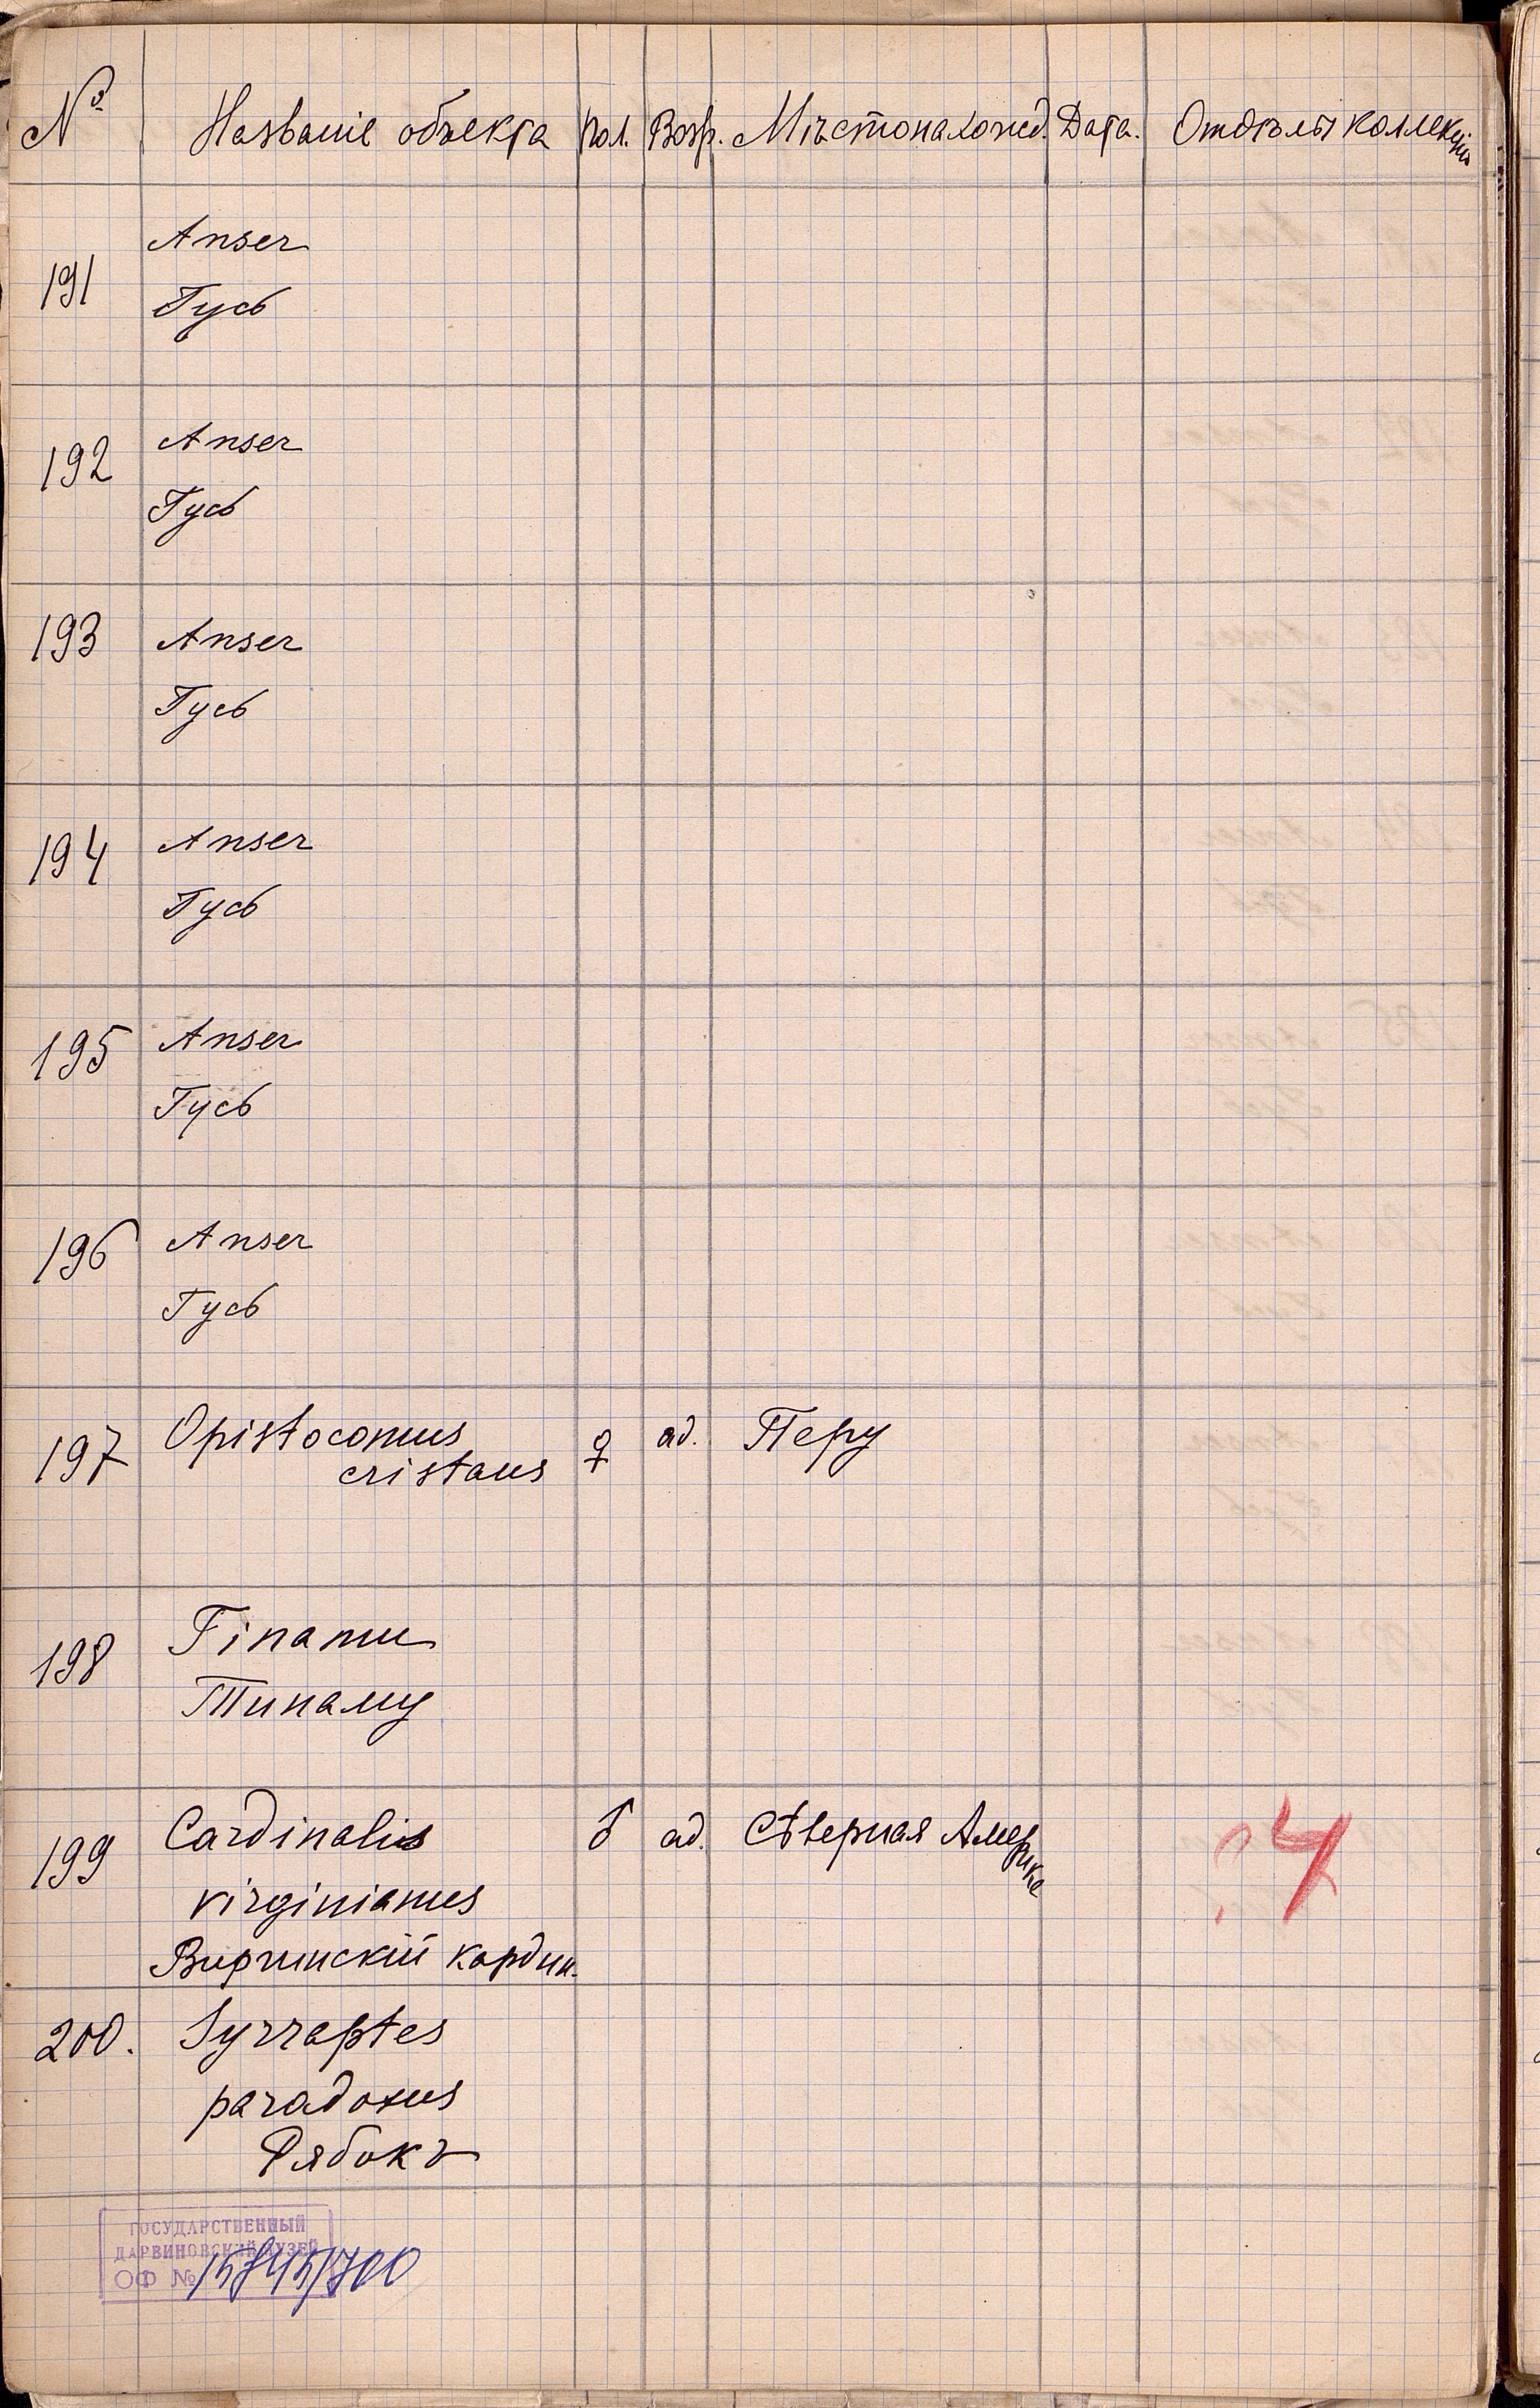 № Названіе объекта Пол. Возр. Мѣстонахожд. Дата. Отдѣлы коллекціи
191 Anser
Гусь
192 Anser
Гусь
193 Anser
Гусь
194 Anser
Гусь
195 Anser
Гусь
196 Anser
Гусь
197 Opistocomus ♀ ad. Перу
cristaus
198 Tinamu
Тинаму
199 Cardinalis ♂ ad. Сѣверная Америка
virginianus
Виргинскій кардин.
200. Syrraptes
paradoxus
Рябокъ
ГОСУДАРСТВЕННЫЙ
ДАРВИНОВСКИЙ МУЗЕЙ
ОФ №